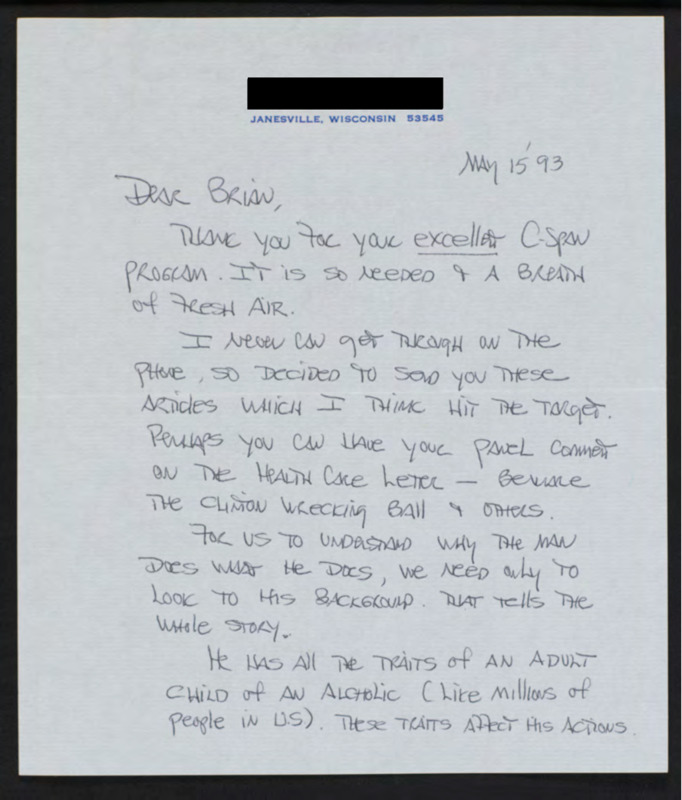 JANESVILLE, WISCONSIN 53545
MAY 15 '93
Dear Brian,
Thank you for your excellent C-Span
program. It is so needed & a breath
of fresh air.
I never can get through on the
phone, so decided to send you these
articles which I think hit the target.
Perhaps you can have your panel comment
on the Health Care Letter — Beware
the Clinton Wrecking Ball & others.
For us to understand why the man
does what he does, we need only to
look to his background. That tells the
whole story.
He has all the traits of an adult
child of an alcholic (like millions of
people in US). These traits affect his actions.